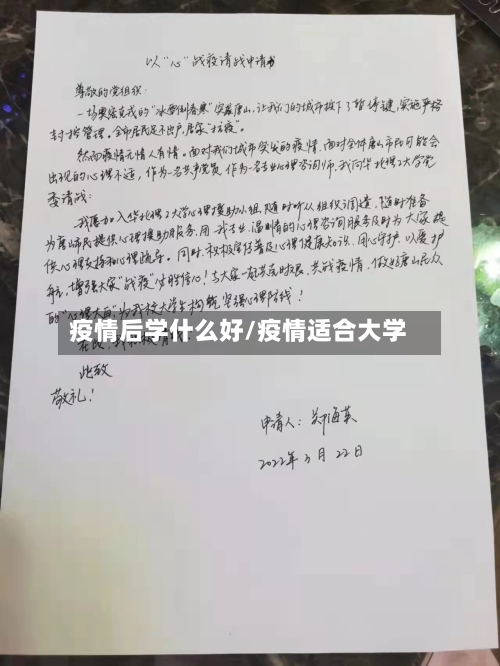 以“心”战疫请战申请书
尊敬的党组织：
一场突如其来的“冰雪倒春寒”突袭唐山，让我们的城市按下了暂停键，实施严格
封控管理，全市居民足不出户，居家“抗疫”。
然而疫情无情人有情。面对我们城市突发的疫情，面对全体唐山市民可能会
出现的心理不适，作为一名共产党员，作为一名专业心理咨询师，我向华北理工大学党
委请战：
我愿加入华北理工大学心理援助小组，随时听从组织调遣，随时准备
为唐山市民提供心理援助服务，用我专业、温情的心理咨询服务及时为大家提
供心理支持和心理疏导。同时，积极宣传普及心理健康知识，用心守护，以爱护
航，增强大家“战疫”必胜信心！与大家一起共克时艰，共战疫情，做好唐山民众
的“心理大白”，为我校大学生构筑坚强心理防线！
疫情后学什么好/疫情适合大学
此致
敬礼！
申请人：郑海英
2022年3月22日